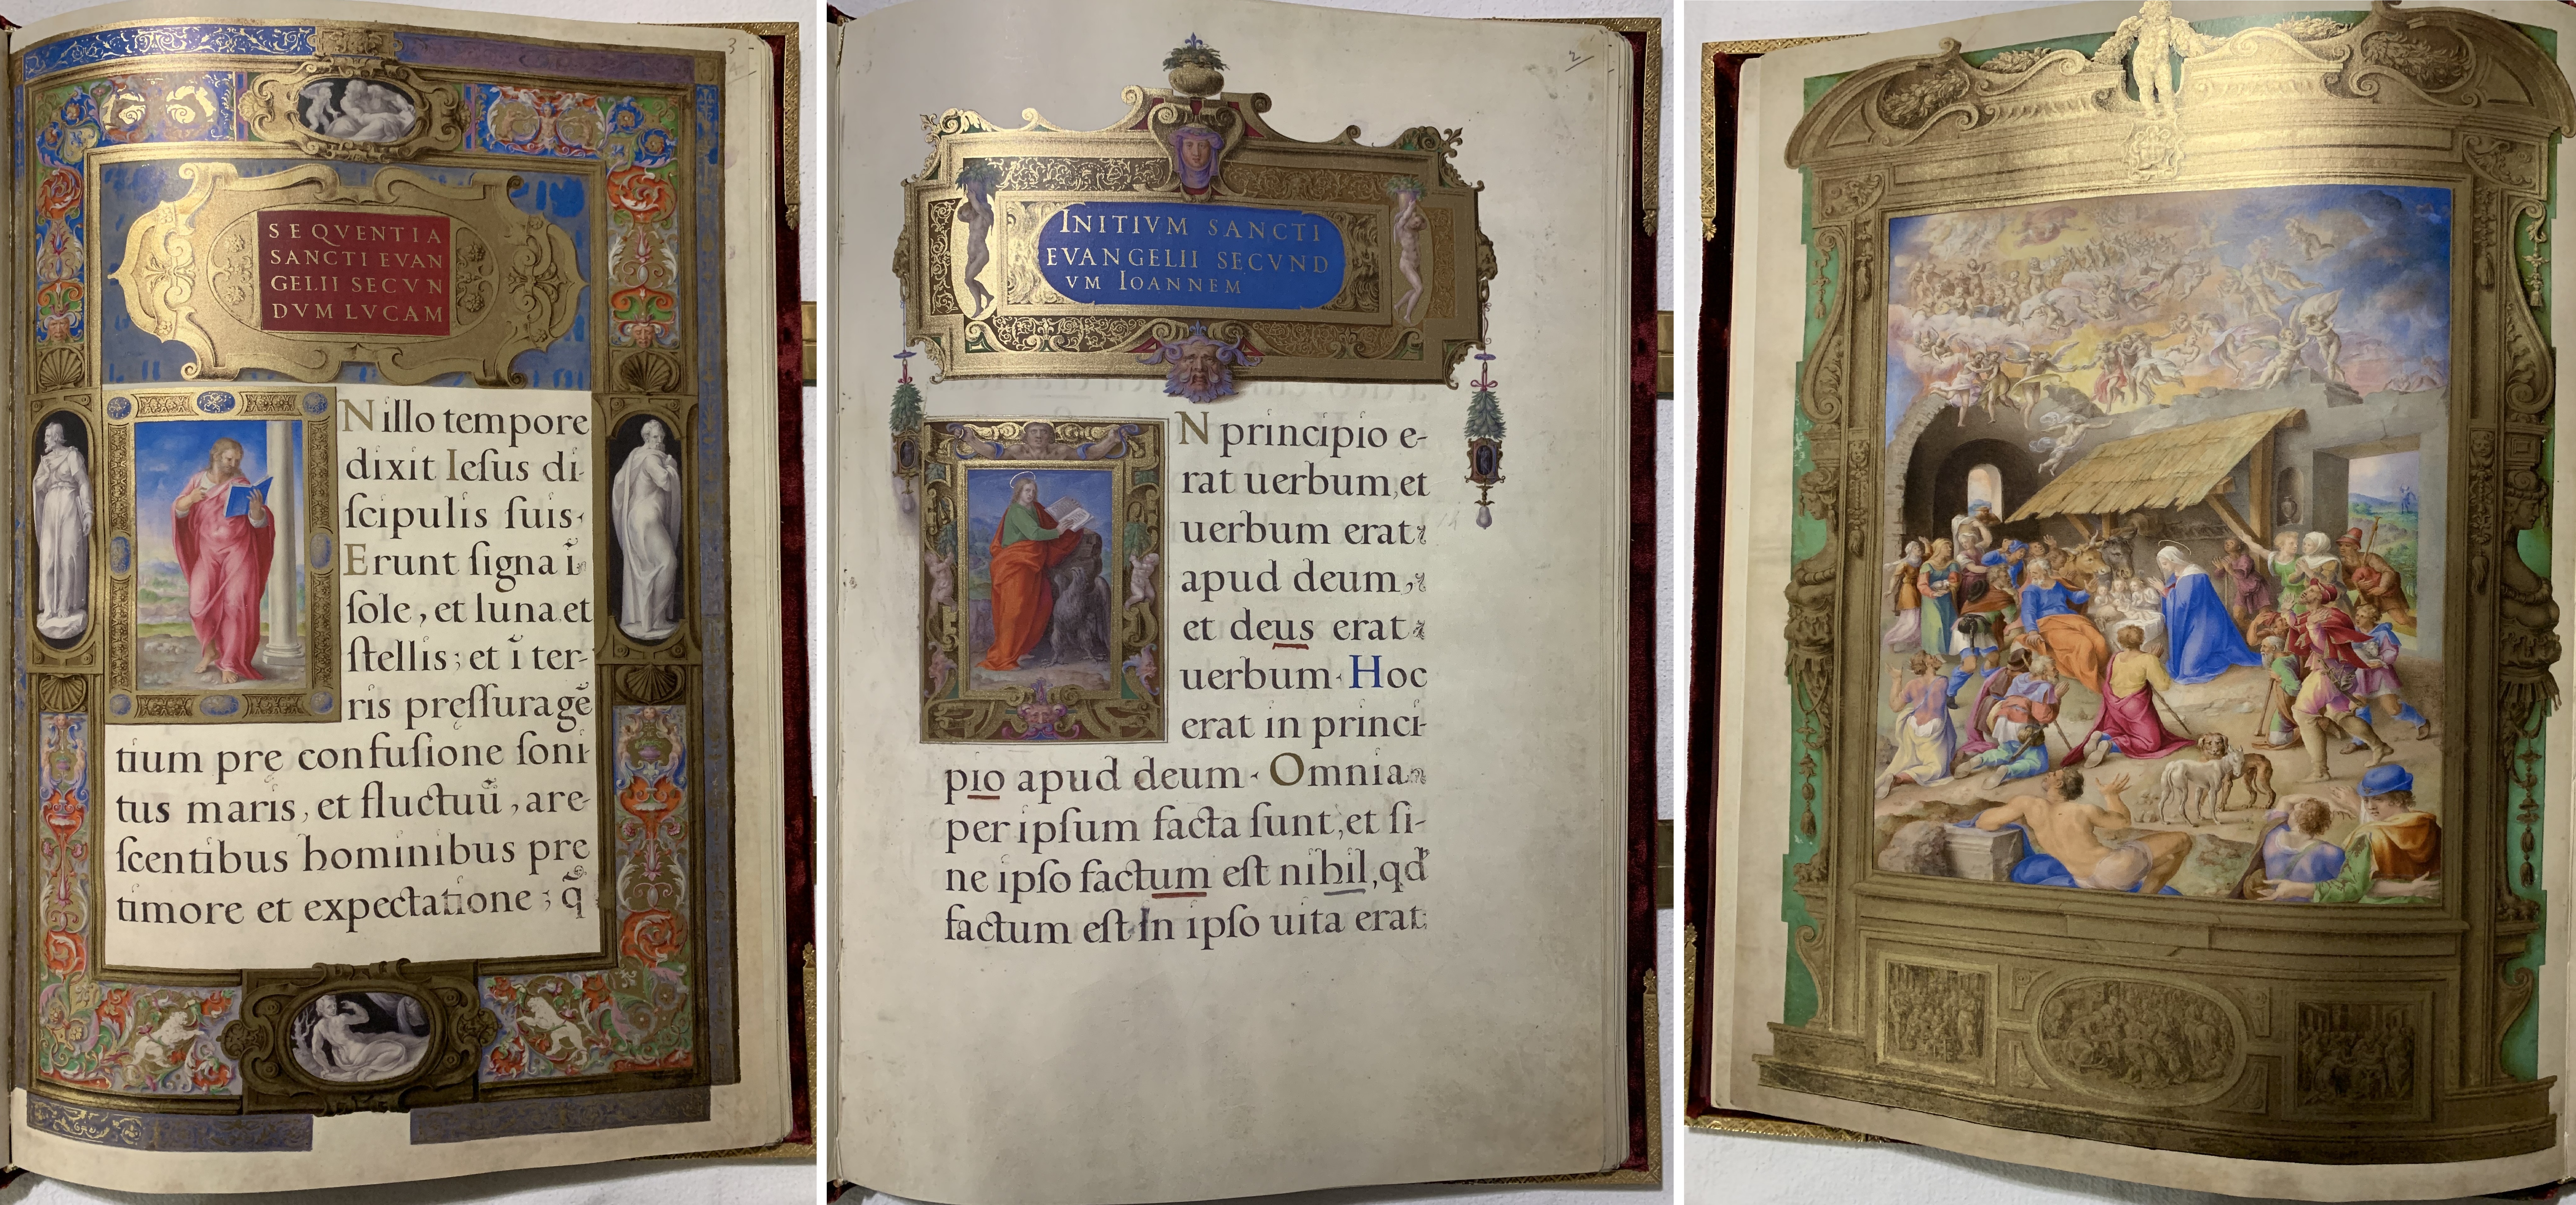 3
SEQVENTIA
SANCTI EVAN
GELII SECVN
DVM LVCAM
N illo tempore
dixit Iesus di-
scipulis suis·
Erunt signa ī
sole, et luna et
stellis; et ī ter-
ris pręssura gē
tium prę confusione soni
tus maris, et fluctuū, are-
scentibus hominibus pre
timore et expectatione; q̄
2
INITIVM SANCTI
EVANGELII SECVND
VM IOANNEM
N principio e-
rat uerbum, et
uerbum erat
apud deum,
et deus erat
uerbum· Hoc
erat in princi-
pio apud deum· Omnia
per ipsum facta sunt, et si-
ne ipso factum est nihil, qd
factum est· In ipso uita erat